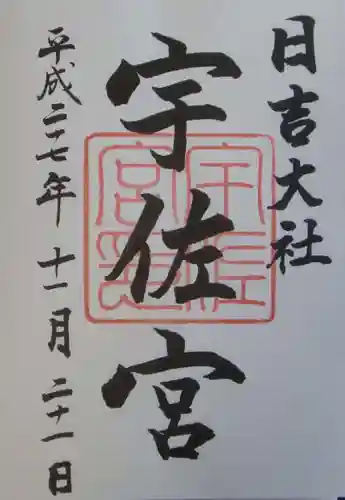 日吉大社
宇佐宮
平成二十七年十一月二十一日